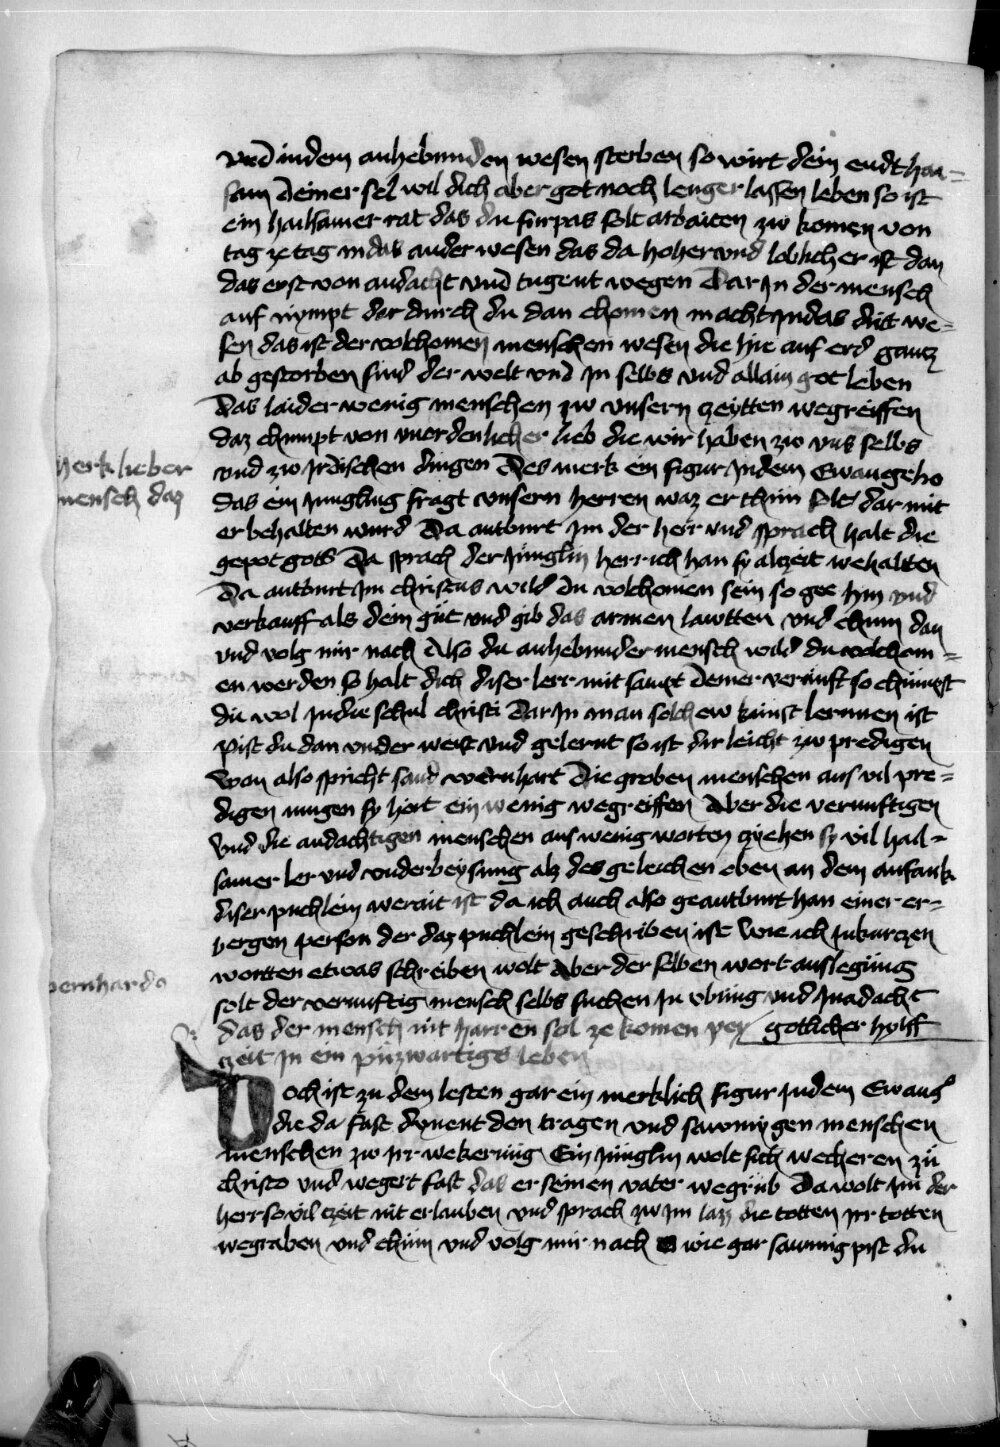 vnd in dem anhebunden wesen sterben so wirt dein endt hai=
sam deiner sel wil dich aber got noch lenger lassen leben so ist
ein hailsamer rat das du furpas solt arbaiten zw komen von
tag ze tag in das ander wesen das da hoher vnd loblicher ist dan
das erst von andacht vnd tugent wegen Dar in der mensch
auf nympt dar durch du dan chomen macht in das drit we=
sen das ist der volchomen menschen wesen die hie auf erd gantz
ab gestorben sind der welt vnd in selbs vnd allain got leben
Das laider wenig menschen zw vnsern czeytten wegreiffen
daz chumpt von vnordenlicher lieb die wir haben zw vns selbs
Merk lieber
mensch daz
vnd zw irdischen dingen Des merk ein figur in dem Ewangelio
das ein Jungling fragt vnsern herren waz er thun solt dar mit
er behalten wurd Da antburt im der herr vnd sprach halt die
gepot gots Da sprach der Jünglin herr ich han sy alczeit wehaltten
Da antburt im christus wild du volchomen sein so gee hin vnd
verkauff als dein güt vnd gib das armen lawtten vnd chum dan
vnd volg mir nach Also du anhebunder mensch wild du volchom=
en werden so halt dich diser lerr mit sampt deiner vernüft so chümpst
du wol in die schul christi Dar in man solchew kunst lernnen ist
Pist du dan vnder weist vnd gelernt so ist dir leicht zw predigen
Wan also spricht sand wernhart Die groben menschen aus vil pre=
digen mugen sy hort ein wenig wegreiffen Aber die vernuftigen
Vnd die andachtigen menschen aus wenig worten cziehen sy vil hail=
samer ler vnd vnderbeysung alz des geleichen eben an dem anfank
diser puchlein werait ist da ich auch also geantburt han einer er=
bergen person der daz puchlein geschriben ist Wie ich in kurczen
wortten etwas schreiben wolt Aber der selben wort auslegüng
bernhardo
solt der vernuftig mensch selbs suchen in vbüng vnd in adacht
das der mensch nit harren sol ze komen pey gotlicher hylff
zeit in ein püzwartigs leben
Doch ist zu dem lesten gar ein merklich figur in dem Ewang
die da fast dynent den tragen vnd sawmygen menschen
menschen zw irr wekerüng Ein Jünglin wolt sich wecheren zü
christo vnd wegert fast das er seinen vater wegrüb Da wolt im der
herr so vil czeit nit erlauben vnd sprach zw im lazz die totten irr totten
wegraben vnd chum vnd volg mir nach O wie gar sawmig pist du